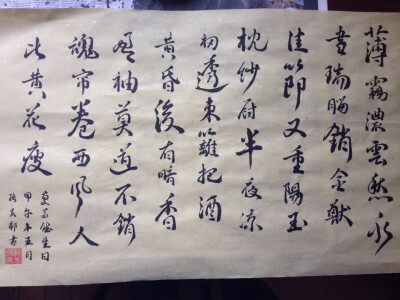 薄霧濃雲愁永
晝瑞腦銷金獸
佳節又重陽玉
枕纱厨半夜凉
初透東籬把酒
黃昏後有暗香
盈袖莫道不銷
魂帘卷西风人
比黄花瘦
生日
甲午年五月
书